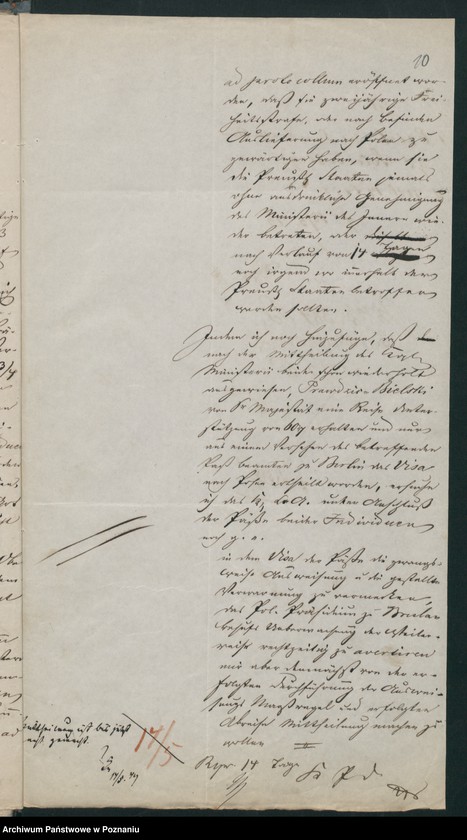 10
ad protocollum eröffnet wor-
den, daß sie zweijährige Frei-
heitsstrafe, oder nach Befinden
Auslieferung nach Polen zu
gewärtigen haben, wenn sie
die Preuß. Staaten jemals
ohne ausdrückliche Genehmigung
des Ministerii des Innern wie-
der betreten, oder
nach Verlauf von 14 Tagen
noch irgend wo innerhalb der
Preuß. Staaten betroffen
werden sollten.
Indem ich noch hinzufüge, daß
nach der Mittheilung des Kgl.
Ministerii beide schon wiederholt
ausgewiesen, Bielski
von Sr Majestät eine Reise Unter-
stützung von erhalten und nur
aus einem Versehen des betreffenden
Paß beamten zu Berlin das Visa
nach Posen ertheilt worden, ersuche
ich das unter Anschluß
der Pässe beider Individuen
noch g. v.
in dem Visa der Pässe die zwangs-
weise Ausweisung u die gestellte
Verwarnung zu vermerken,
das Pol. Präsidium zu Breslau
behufs Ueberwachung der Weiter-
reise rechtzeitig zu avertiren
mir aber demnächst von der er-
folgten Durchführung der Auswei-
sungs Maaßregel und erfolgten
Abreise Mittheilung machen zu
wollen
Mittheilung ist bis jetzt
nicht gemacht.
17/5
Repr 14 Tage
K P d
Archiwum Państwowe w Poznaniu